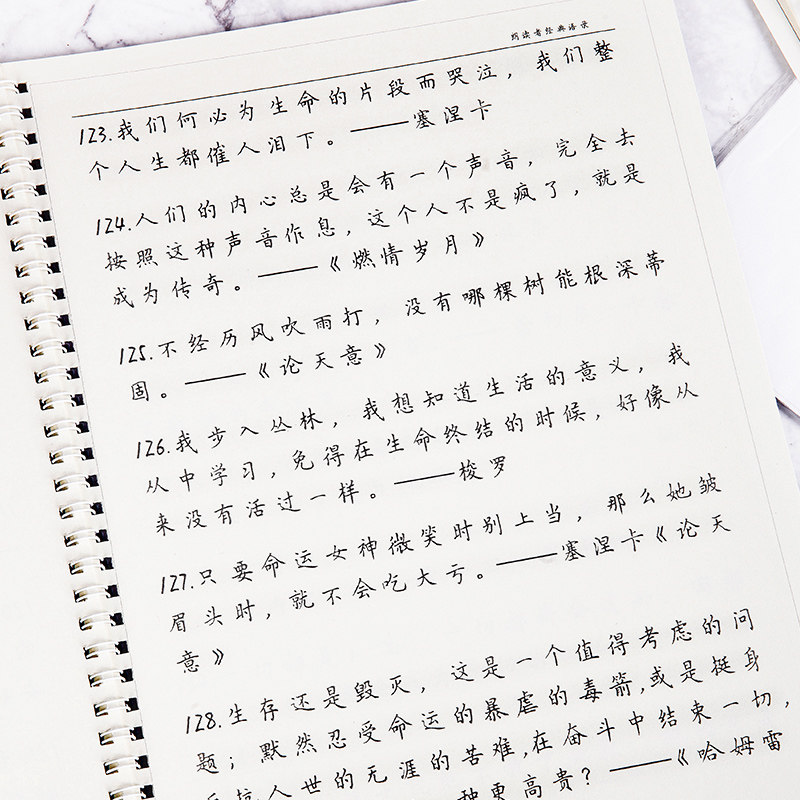 朗读者经典语录
123.我们何必为生命的片段而哭泣，我们整
个人生都催人泪下。——塞涅卡
124.人们的内心总是会有一个声音，完全去
按照这种声音作息，这个人不是疯了，就是
成为传奇。——《燃情岁月》
125.不经历风吹雨打，没有哪棵树能根深蒂
固。——《论天意》
126.我步入丛林，我想知道生活的意义，我
从中学习，免得在生命终结的时候，好像从
来没有活过一样。——梭罗
127.只要命运女神微笑时别上当，那么她皱
眉头时，就不会吃大亏。——塞涅卡《论天
意》
128.生存还是毁灭，这是一个值得考虑的问
题；默然忍受命运的暴虐的毒箭,或是挺身
反抗人世的无涯的苦难,在奋斗中结束一切，
种更高贵？——《哈姆雷